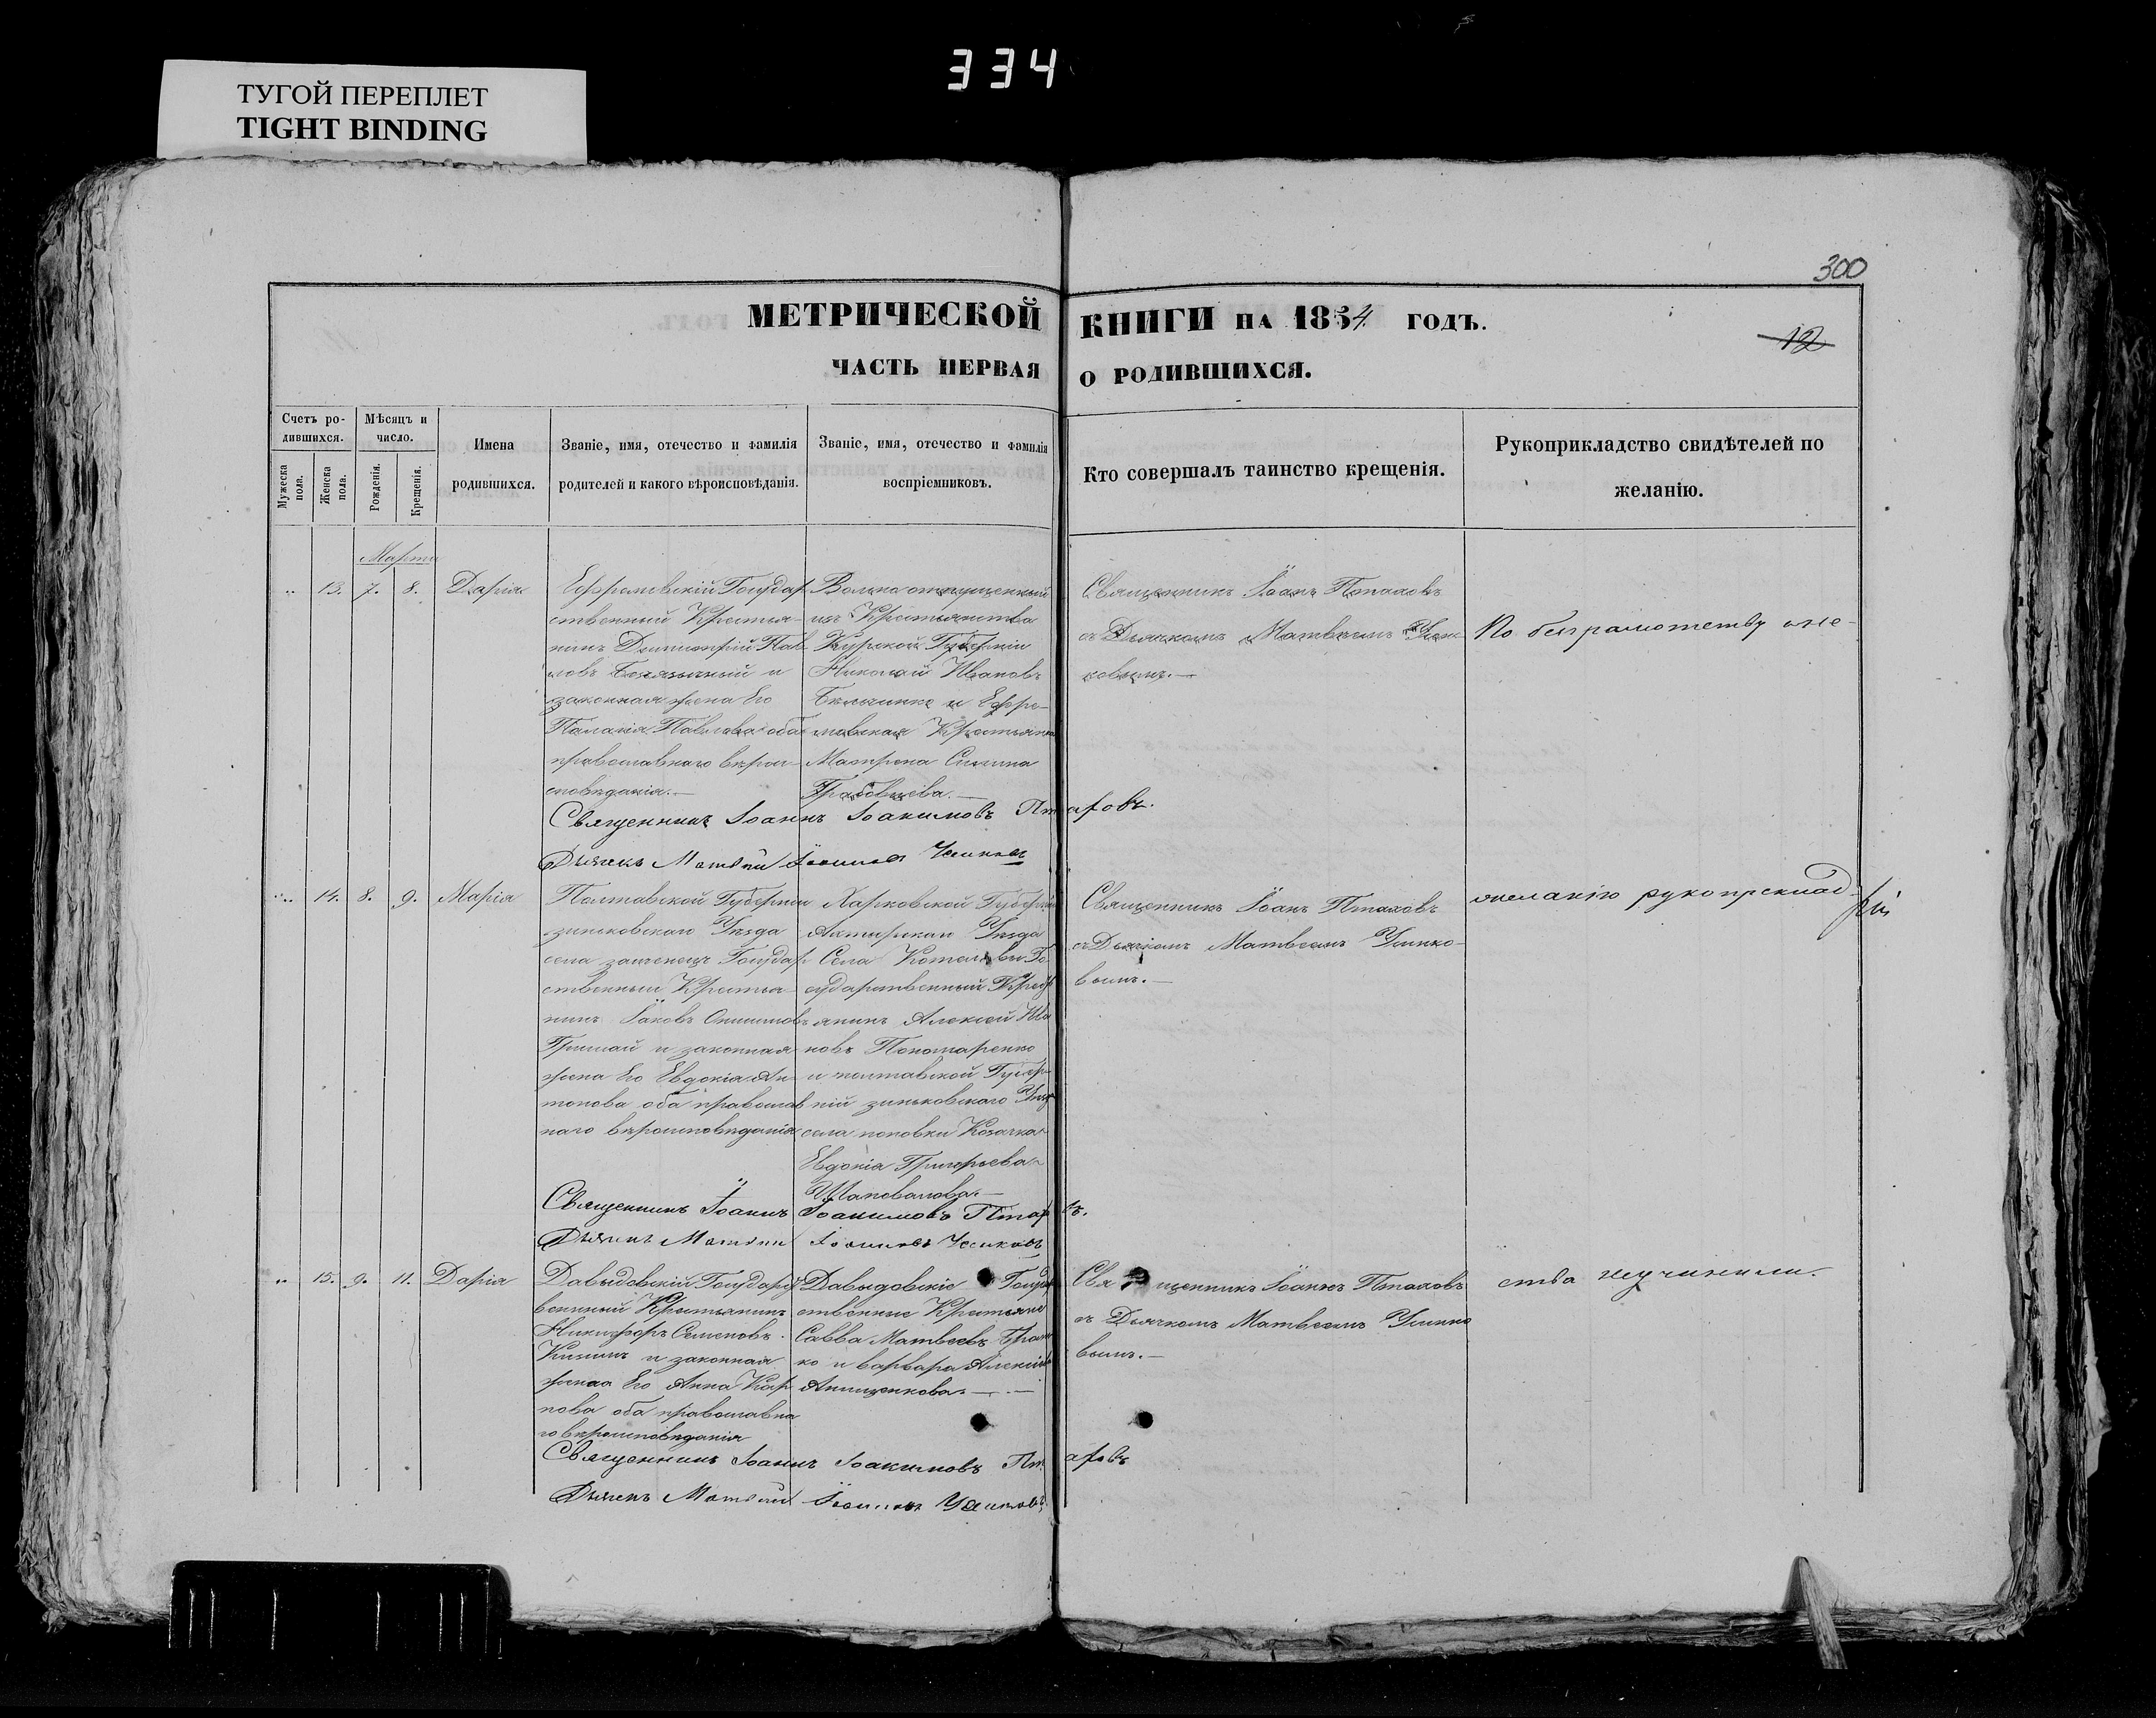 334
ТУГОЙ ПЕРЕПЛЕТ
TIGHT BINDING
300
МЕТРИЧЕСКОЙ КНИГИ НА 1854 ГОДЪ.
12
ЧАСТЬ ПЕРВАЯ О РОДИВШИХСЯ.
Счетъ ро-
дившихся.
Мужеска
пола.
Женска
пола.
Мѣсяцъ и
число.
Рожденія.
Крещенія.
Имена
родившихся.
Званіе, имя, отечество и фамилія
родителей и какого вѣроисповѣданія.
Званіе, имя, отечество и фамилія
воспріемниковъ.
Кто совершалъ таинство крещенія.
Рукоприкладство свидѣтелей по
желанію.
Марта
13. 7. 8. Дарія
Ефремовскій Государ
ственный Крестья-
нинъ Димитрій Пав
ловъ и
законная жена Его
Палагія Павлова оба
православнаго вѣрои-
сповѣданія.—
Вольно отпущенный
изъ Крестьянства
Курской Губерніи
Николай Ивановъ
и Ефре-
мовская Крестьянка
Матрона
Священникъ Іоанъ Птаховъ
съ Дьячкомъ Матвеемъ Усик
ковымъ.—
По безграмотству оже-
Священникъ Іоаннъ Іоакимовъ Птаховъ.
Дьячекъ Матвѣй Усиковъ
14. 8. 9. Марія
Полтавской Губерніи
зиньковскаго Уѣзда
села Государ
ственный Крестья
нинъ Іаковъ Онисимовъ
и законная
жена Его Евдокія Ан-
тонова оба православ
наго вѣроисповѣданія
Харковской Губерніи
Ахтырскаго Уѣзда
Села Котельвы Го
сударственный Крест
янинъ Алексей Ива
новъ Пономаренко
и полтавской Губер-
ній зиньковскаго Уѣз
села поповки Козачка
Евдокія Григорьева
Шаповалова.—
Священникъ Іоанъ Птаховъ
съ Дьячкомъ Матвеемъ Усико-
вымъ.—
желанію рукоприклад-
Священникъ Іоаннъ Іоакимовъ Птаховъ.
Дьячекъ Матвѣй Усиковъ
15. 9. 11. Дарія
Давыдовскій Государст
венный Крестьянинъ
Никифоръ Семеновъ
и законная
жена Его Анна Кар
пова оба православна
го вѣроисповѣданія
Давыдовскіе Государ
ственные Крестьяне
Савва Матвеевъ
ко и варвара Алексіева
Анищенкова.—
Священникъ Іоаннъ Птаховъ
съ Дьячкомъ Матвеемъ Усико
вымъ.—
ства неучинили.
Священникъ Іоаннъ Іоакимовъ Птаховъ
Дьячекъ Матвѣй Усиковъ